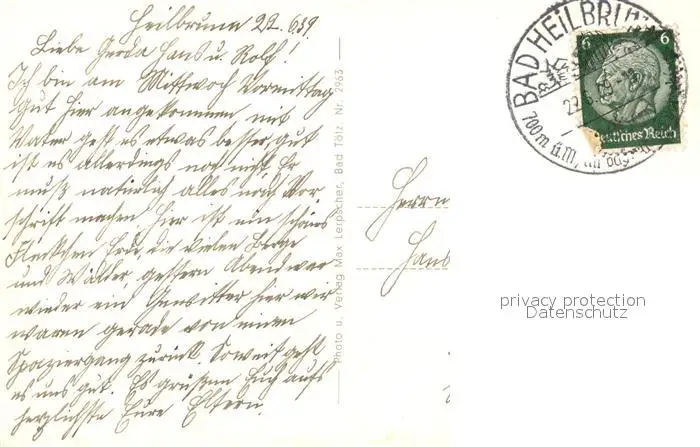 Heilbrunn 22.6.39.
Liebe Gerda Hans u. Rolf!
Ich bin am Mittwoch Vormittag
Gut hier angekommen mit
Vater geht es etwas besser, gut
ist es allerdings noch nicht. Er
muß natürlich alles nach Vor
schrift machen. Hier ist ein schönes
Fleckchen Erde, die vielen Berge
und Wälder, gestern Abend war
wieder ein Gewitter hier wir
waren gerade von einem
Spaziergang zurück. Soweit geht
es uns gut. Es grüßen Euch aufs
herzlichste Eure Eltern.
Photo u. Verlag Max Lerpscher, Bad Tölz. Nr. 2963
Herrn
Hans
BAD HEILBRUNN
700m ü.M.
6 6
Deutsches Reich
privacy protection
Datenschutz